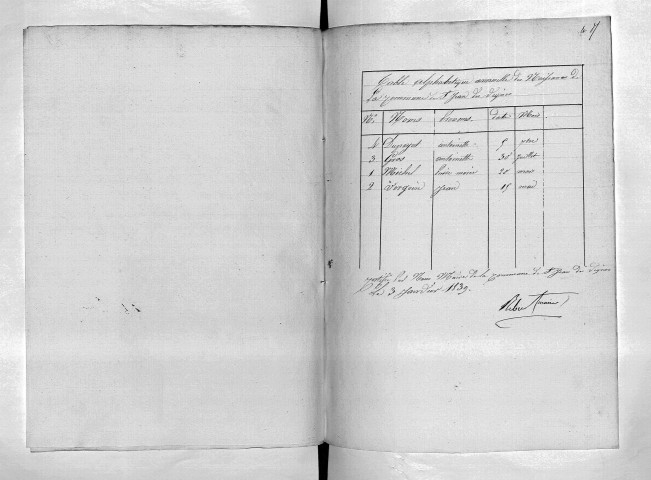 Table alphabétique annuelle des Naissances de
La commune de St Jean des Vignes
No. Noms Prenoms date Mois
4 Dupeyet antoinette 5 9bre
3 Gros antoinette 30 juillet
1 Michel marie 20 mars
2 Vorgoin Jean 15 mai
Certifié par Nous Maire de la commune de St Jean des Vignes
Le 3 Janvier 1839.